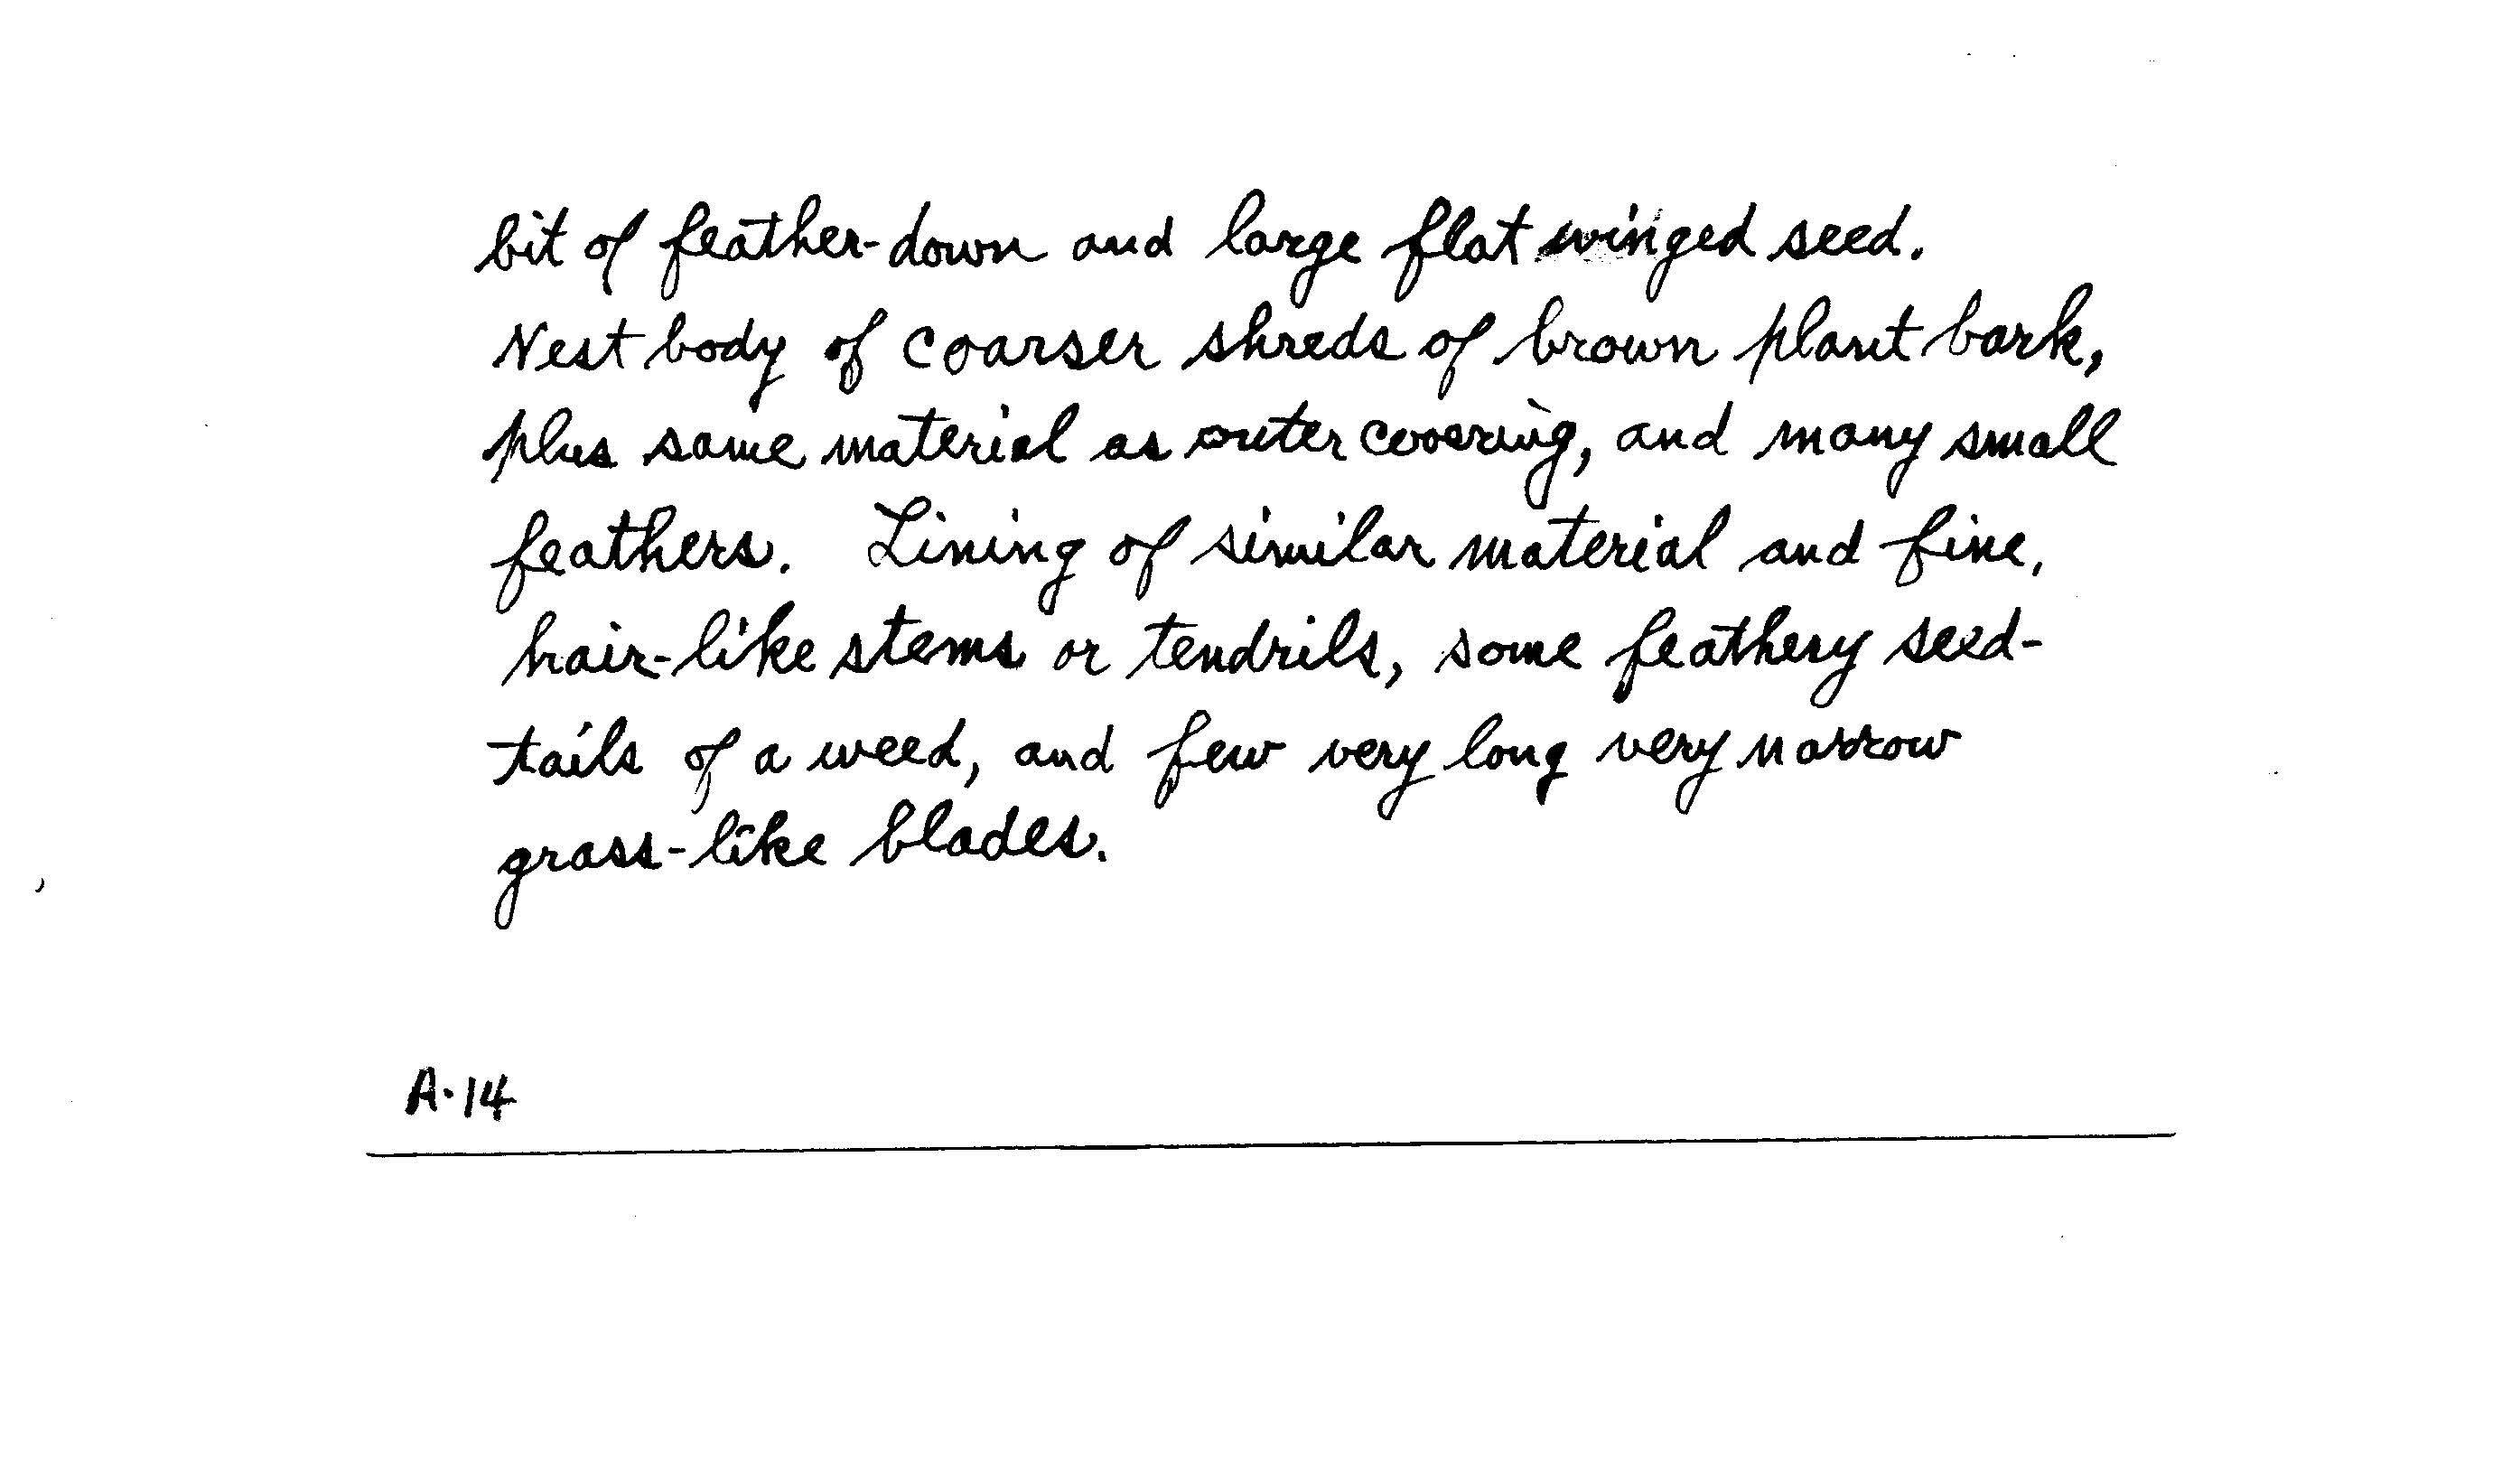 bit of feather-down and large flat winged seed.
Nest body of coarser shreds of brown plant bark,
plus same material as outer covering, and many small
feathers. Lining of similar material and fine,
hair-like stems or tendrils, some feathery seed-
tails of a weed, and few very long very narrow
grass-like blades.
A-14